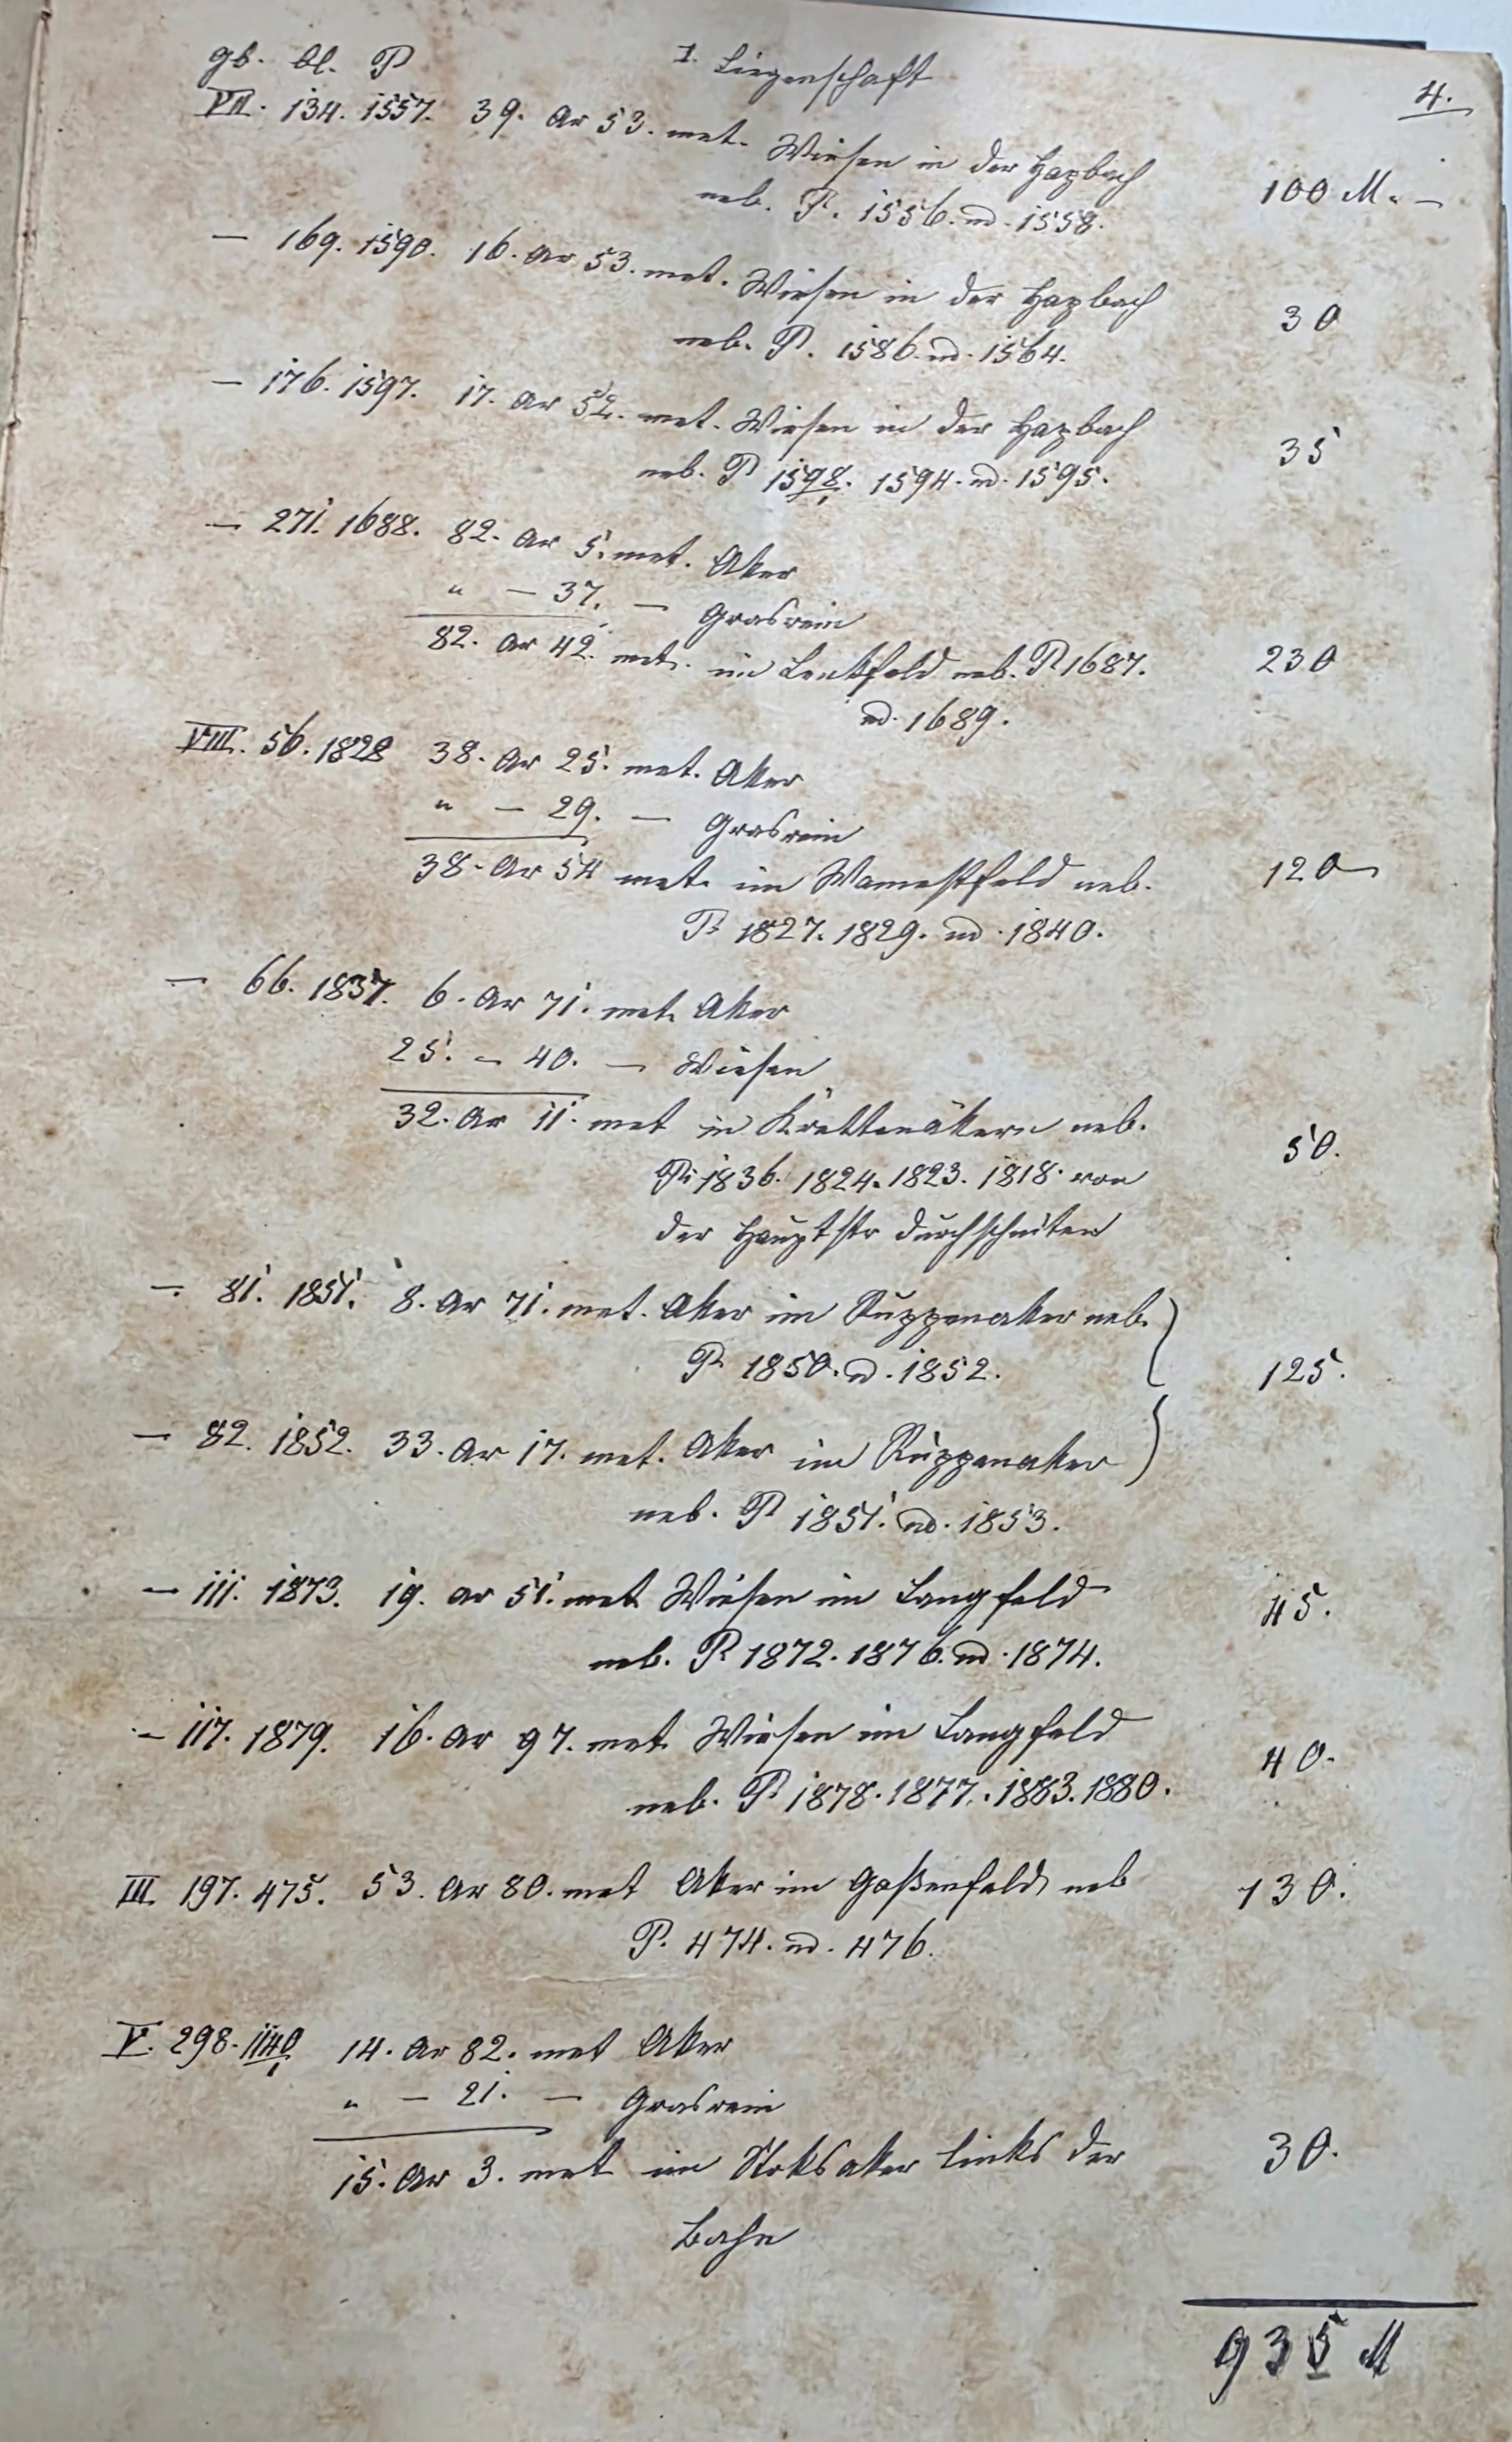 gb. bl. P I. Liegenschaft
4.
VII. 134. 1557. 39. Ar 53. met. Wiesen in der Hagbach 100 M. –
neb. P. 1556. ud. 1558.
– 169. 1590. 16. Ar 53. met. Wiesen in der Hagbach 30
neb. P. 1586. ud. 1564.
– 176. 1597. 17. Ar 52. met. Wiesen in der Hagbach 35
neb. P 1598/1. 1594. ud. 1595.
– 271. 1688. 82. Ar 5. met. Aker
" – 37. – Grasrain
82. Ar 42. met. im neb. P 1687. 230
ud. 1689.
VIII. 56. 1828 38. Ar 25. met. Aker
" – 29. – Grasrain
38. Ar 54 met. im neb. 120
P. 1827. 1829. ud. 1840.
– 66. 1837. 6. Ar 71. met. Aker
25. – 40. – Wiesen
32. Ar 11. met in Krettenäkern neb. 50.
P. 1836. 1824. 1823. 1818. von
der Hauptstr durchschniten
– 81. 1851. 8. Ar 71. met. Aker im Ruppenaker neb.
P. 1850. ud. 1852. 125.
– 82. 1852. 33. Ar 17. met. Aker im Ruppenaker
neb. P 1851. ud. 1853.
– 111. 1873. 19. ar 51. met Wiesen im Langfeld 45.
neb. P 1872. 1876. ud. 1874.
– 117. 1879. 16. Ar 97. met Wiesen im Langfeld 40.
neb. P. 1878. 1877. 1883. 1880.
III. 197. 475. 53. Ar 80. met Aker im Gaßenfeld neb 130.
P. 474. ud. 476.
V. 298. 1140/1 14. Ar 82. met Aker
" – 21. – Grasrain
15. Ar 3. met im Stoksaker links der 30.
Bahn
935 M